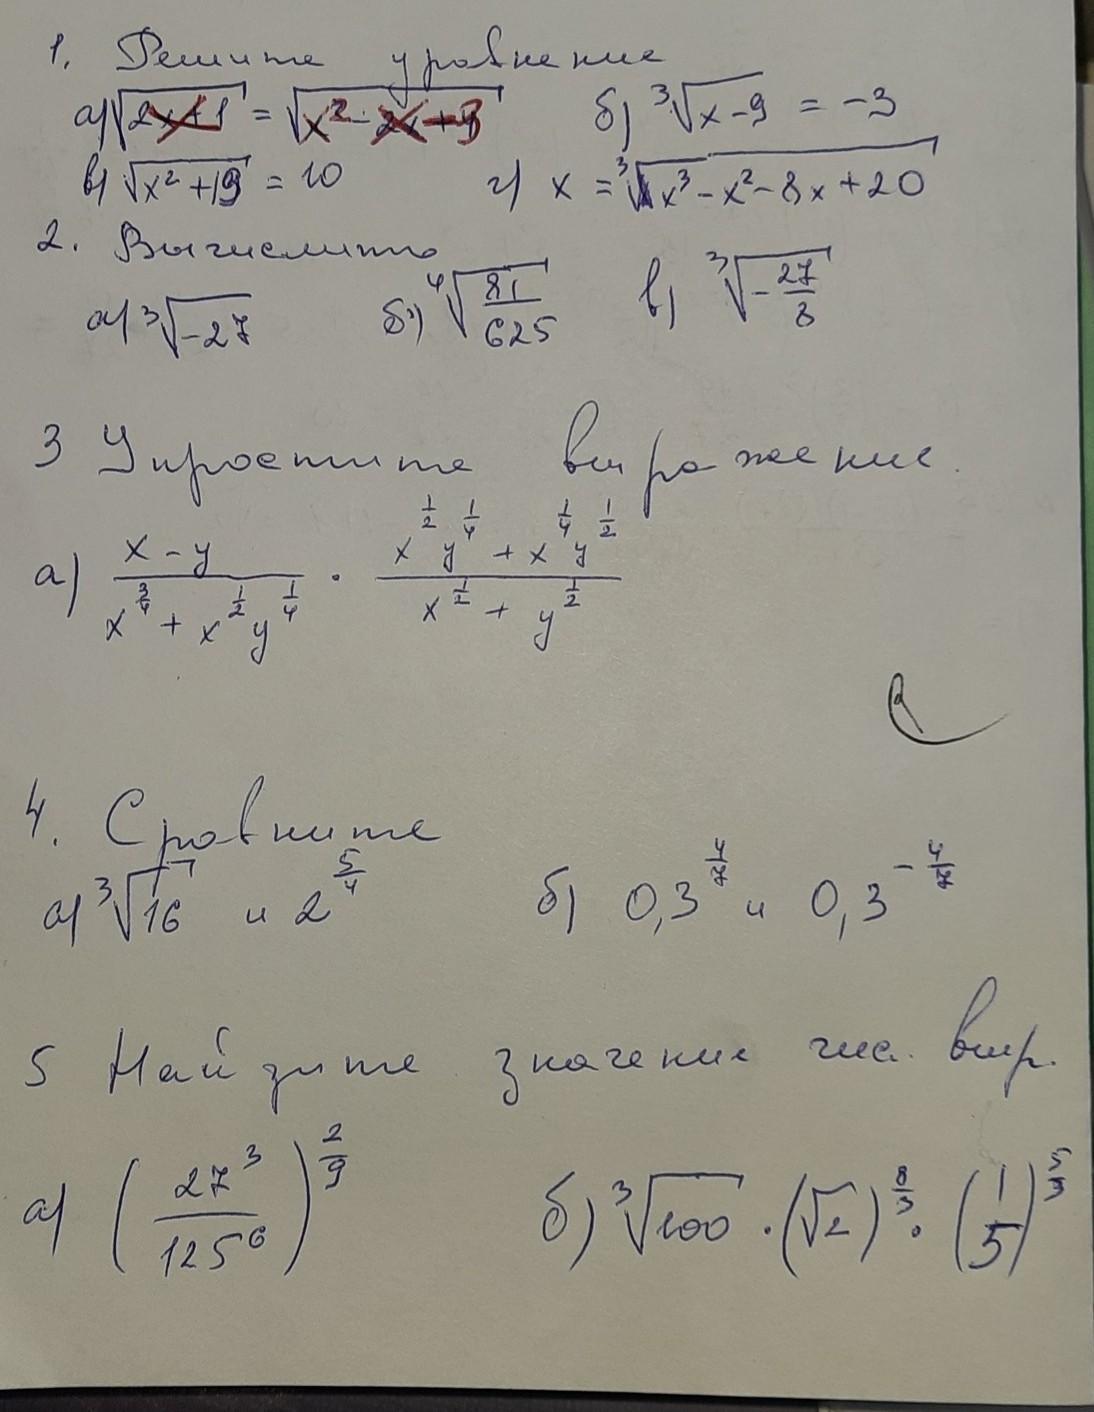 1. Решите уравнение
а) √(2x+1) = √(x² - 2x + 9) б) ³√(x-9) = -3
в) √(x² + 19) = 10 г) x = ³√(x³ - x² - 8x + 20)
2. Вычислить
а) ³√(-27) б) ⁴√(81/625) в) ³√(-27/8)
3 Упростите выражение.
а) (x - y)/(x^(3/4) + x^(1/2)y^(1/4)) · (x^(1/2)y^(1/4) + x^(1/4)y^(1/2))/(x^(1/2) + y^(1/2))
4. Сравните
а) ³√16 и 2^(5/4) б) 0,3^(4/7) и 0,3^(-4/7)
5 Найдите значение чис. выр.
а) (27³/125⁶)^(2/9) б) ³√100 · (√2)^(8/3) · (1/5)^(5/3)